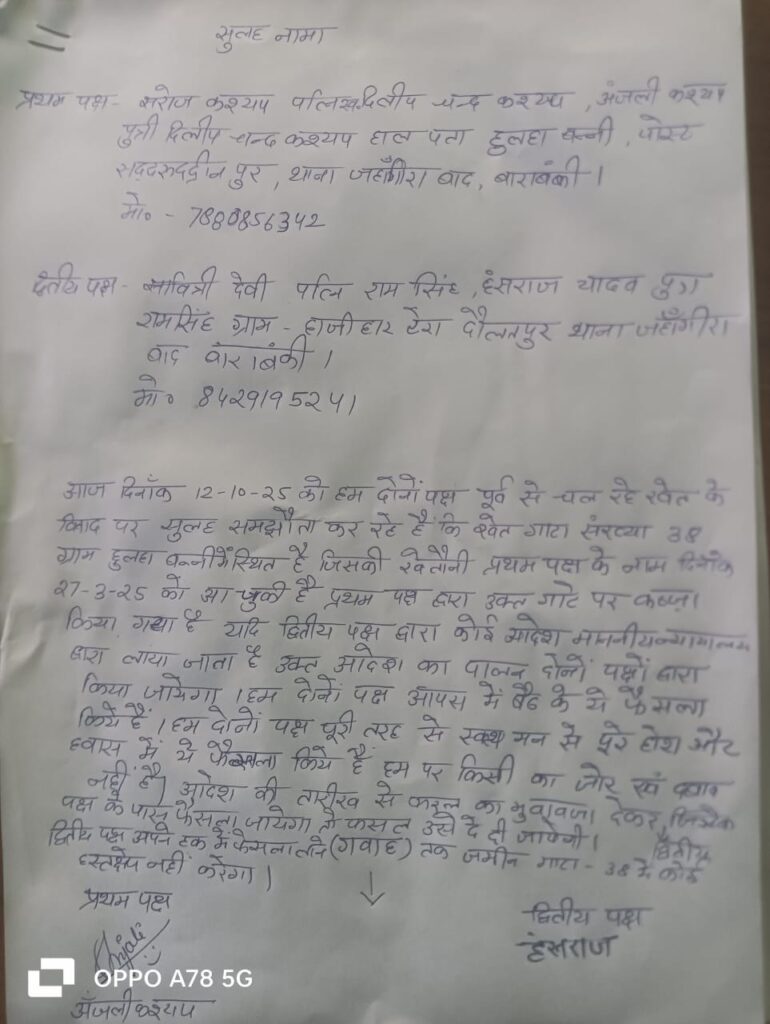 सुलह नामा
प्रथम पक्ष - सरोज कश्यप पत्नि स्व० दिलीप चन्द कश्यप, अंजली कश्यप
पुत्री दिलीप चन्द कश्यप हाल पता हुलहा बन्नी, पोस्ट
सद्दरुद्दीन पुर, थाना जहाँगीरा बाद, बाराबंकी।
मो० - 7880856342
द्वितीय पक्ष - सावित्री देवी पत्नि राम सिंह, हंसराज यादव पुत्र
रामसिंह ग्राम - हाजीहार टेरा दौलतपुर थाना जहाँगीरा
बाद बाराबंकी।
मो० 8429195241
आज दिनाँक 12-10-25 को हम दोनों पक्ष पूर्व से चल रहे खेत के
विवाद पर सुलह समझौता कर रहे हैं कि खेत गाटा संख्या 38
ग्राम हुलहा बन्नी में स्थित है जिसकी खेतौनी प्रथम पक्ष के नाम दिनाँक
27-3-25 को आ चुकी है प्रथम पक्ष द्वारा उक्त गाटे पर कब्ज़ा
किया गया है यदि द्वितीय पक्ष द्वारा कोई आदेश माननीय न्यायालय
द्वारा लाया जाता है उक्त आदेश का पालन दोनों पक्षों द्वारा
किया जायेगा। हम दोनों पक्ष आपस में बैठ के ये फैसला
किये हैं। हम दोनों पक्ष पूरी तरह से स्वस्थ मन से पूरे होश और
हवास में ये फैसला किये हैं हम पर किसी का जोर एवं दबाव
नहीं है। आदेश की तारीख से फसल का मुवावजा देकर, जिसके
पक्ष के पास फैसला जायेगा तो फसल उसे दे दी जायेगी। द्वितीय
द्वितीय पक्ष अपने हक में फैसला लाने (गवाह) तक जमीन गाटा - 38 में कोई
हस्तक्षेप नहीं करेगा।
प्रथम पक्ष
द्वितीय पक्ष
Anjali
हंसराज
OPPO A78 5G
अंजली कश्यप